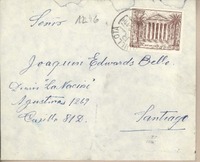 Señor
Joaquín Edwards Bello
Diario "La Nación"
Agustinas 1269
Casilla 81 D.
Santiago